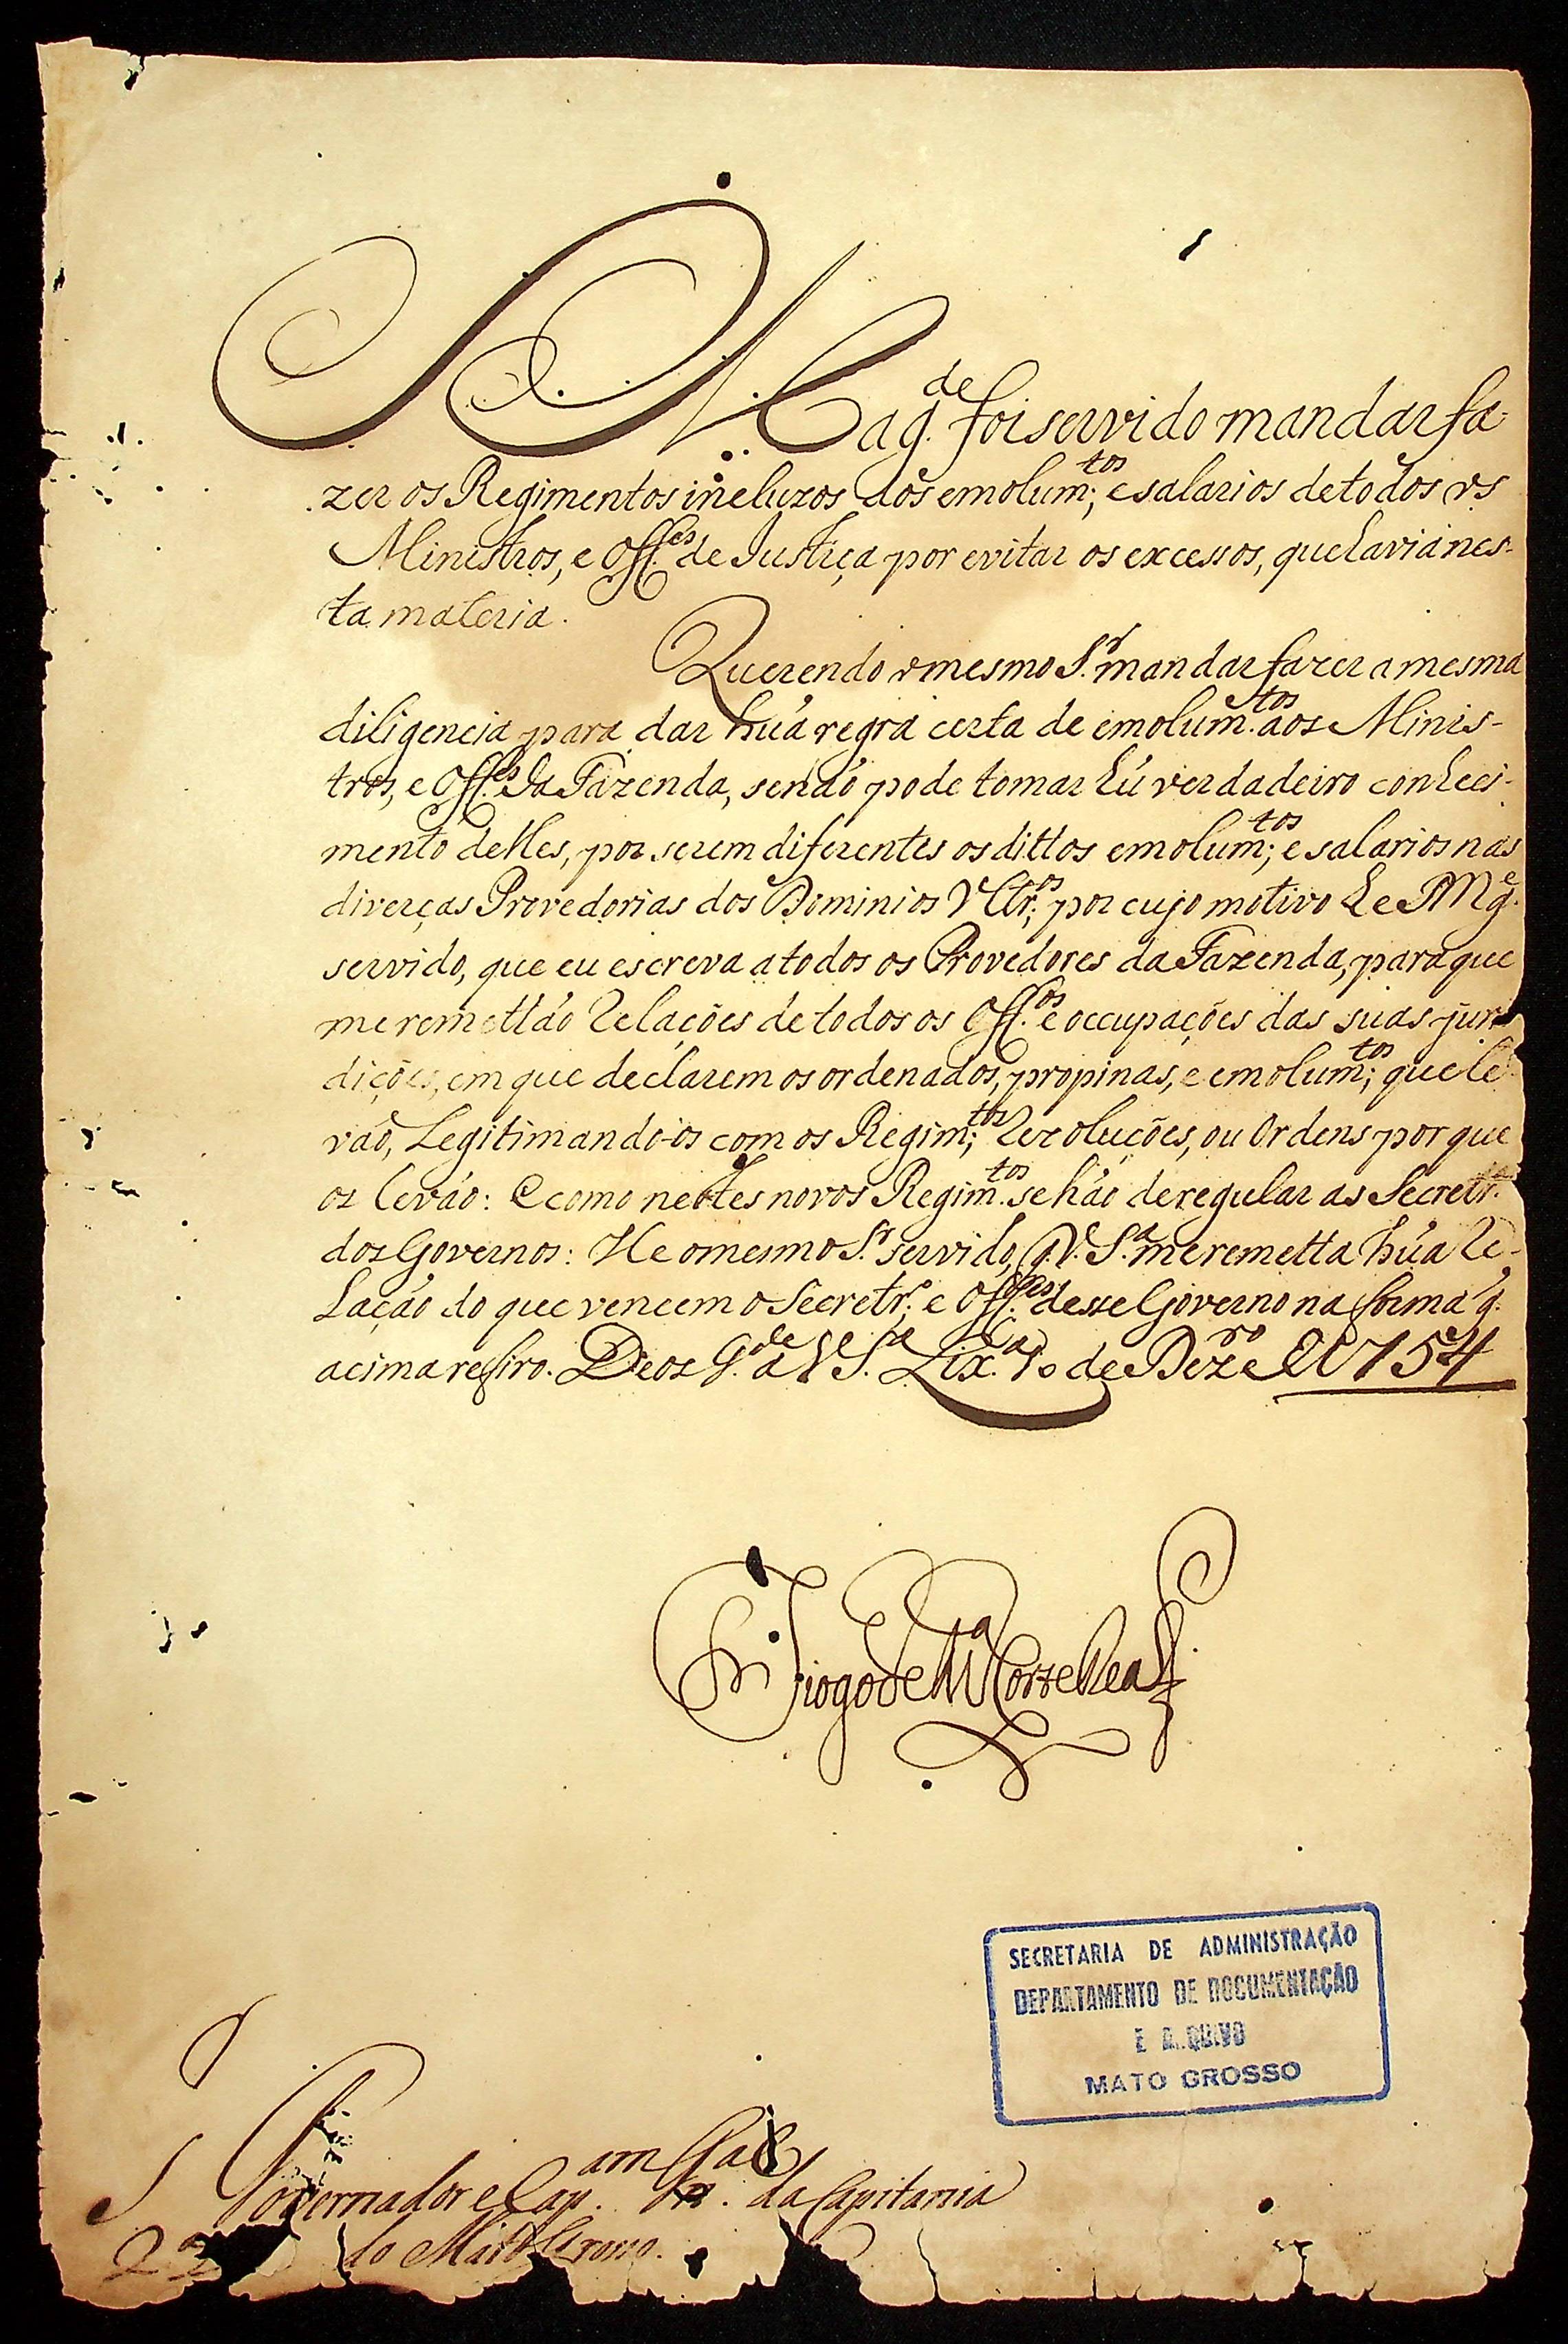 S Mag.de foi servido mandar fa-
zer os Regimentos incluzos dos emolum.tos; e salarios de todos os
Ministros, e Off.es de Justiça por evitar os excessos, que havia nes-
ta materia.
Querendo o mesmo S.r mandar fazer a mesma
diligencia para dar huá regra certa de emolum.tos aos Minis-
tros, e Off.es da Fazenda, senaó pode tomar hú verdadeiro conheci-
mento delles, por serem diferentes os dittos emolum.tos; e salarios nas
diverças Provedorias dos Dominios Vltr.os; por cujo motivo he S Mg.e
servido, que eu escreva a todos os Provedores da Fazenda, para que
me remettáo Relações de todos os Off.os e occupações das suas juris
dições, em que declarem os ordenados, propinas, e emolum.tos; que le
vaó, Legitimando-os com os Regim.tos; Rezoluções, ou Ordens por que
os levaó: E como nestes novos Regim.tos se háo de regular as Secretr.as
dos Governos: He o mesmo S.r servido, q. V. S.a me remetta húa Re-
Laçáo do que vencem o Secretr.o; e Off.es desse Governo na forma q.
acima refiro. Deos G.de a V S.a Lix.a 10 de Dez.ro de 1754
Diogo de M.ça Corte Real
S Governador e Cap.am Gn.al da Capitania
2.a do Mato Grosso.
SECRETARIA DE ADMINISTRAÇÃO
DEPARTAMENTO DE DOCUMENTAÇÃO
E ARQUIVO
MATO GROSSO